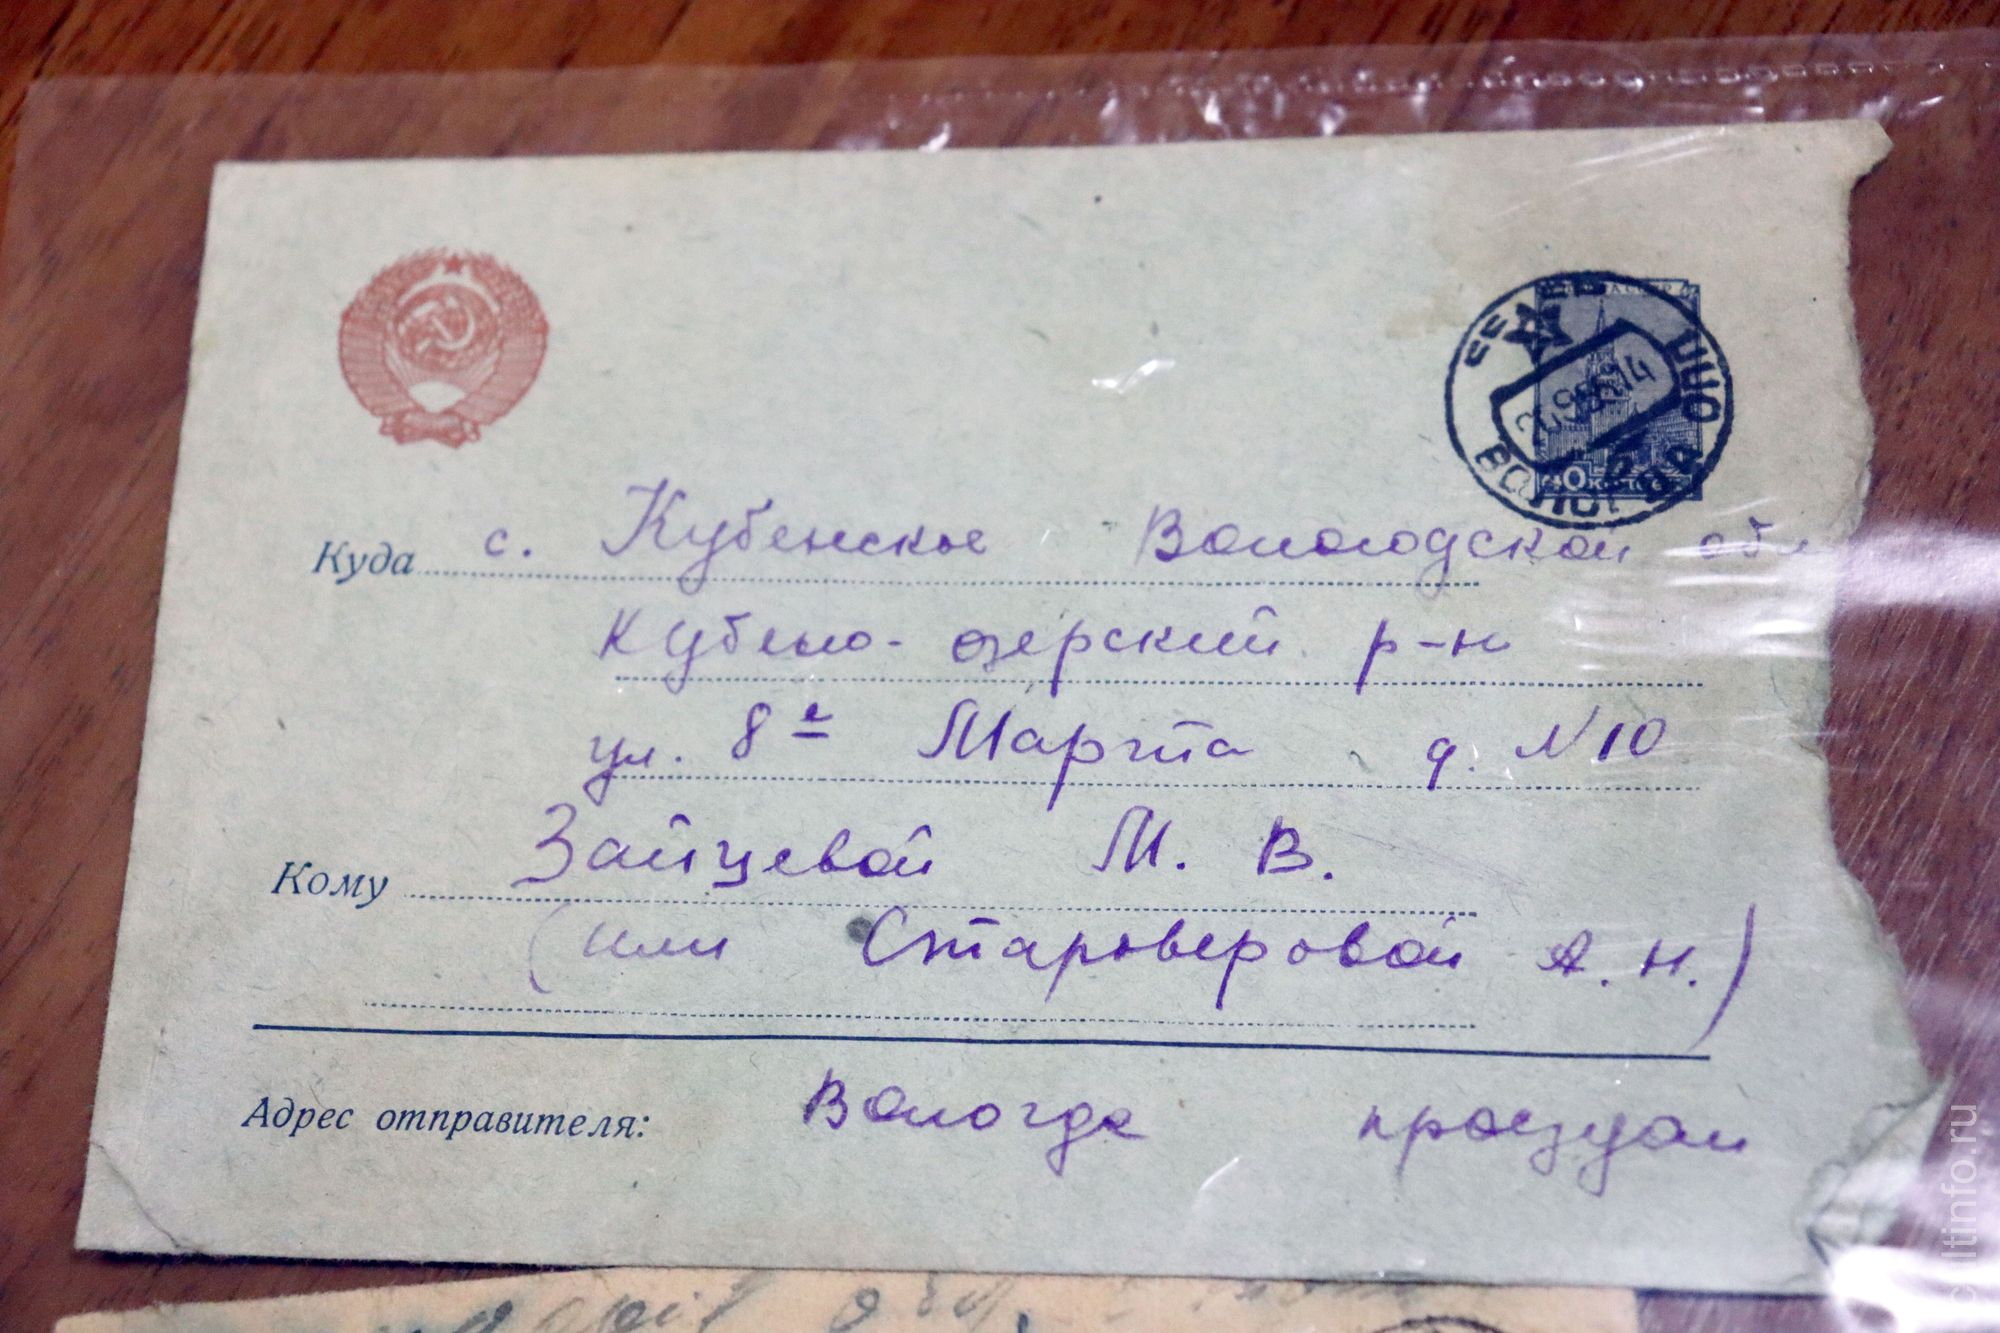 40
ВОЛОГДА
Куда с. Кубенское Вологодской обл
Кубено-озерский р-н
ул. 8е Марта д. N 10
Кому Зайцевой М. В.
(или Староверовой А. Н.)
Адрес отправителя: Вологда проездом
cultinfo.ru